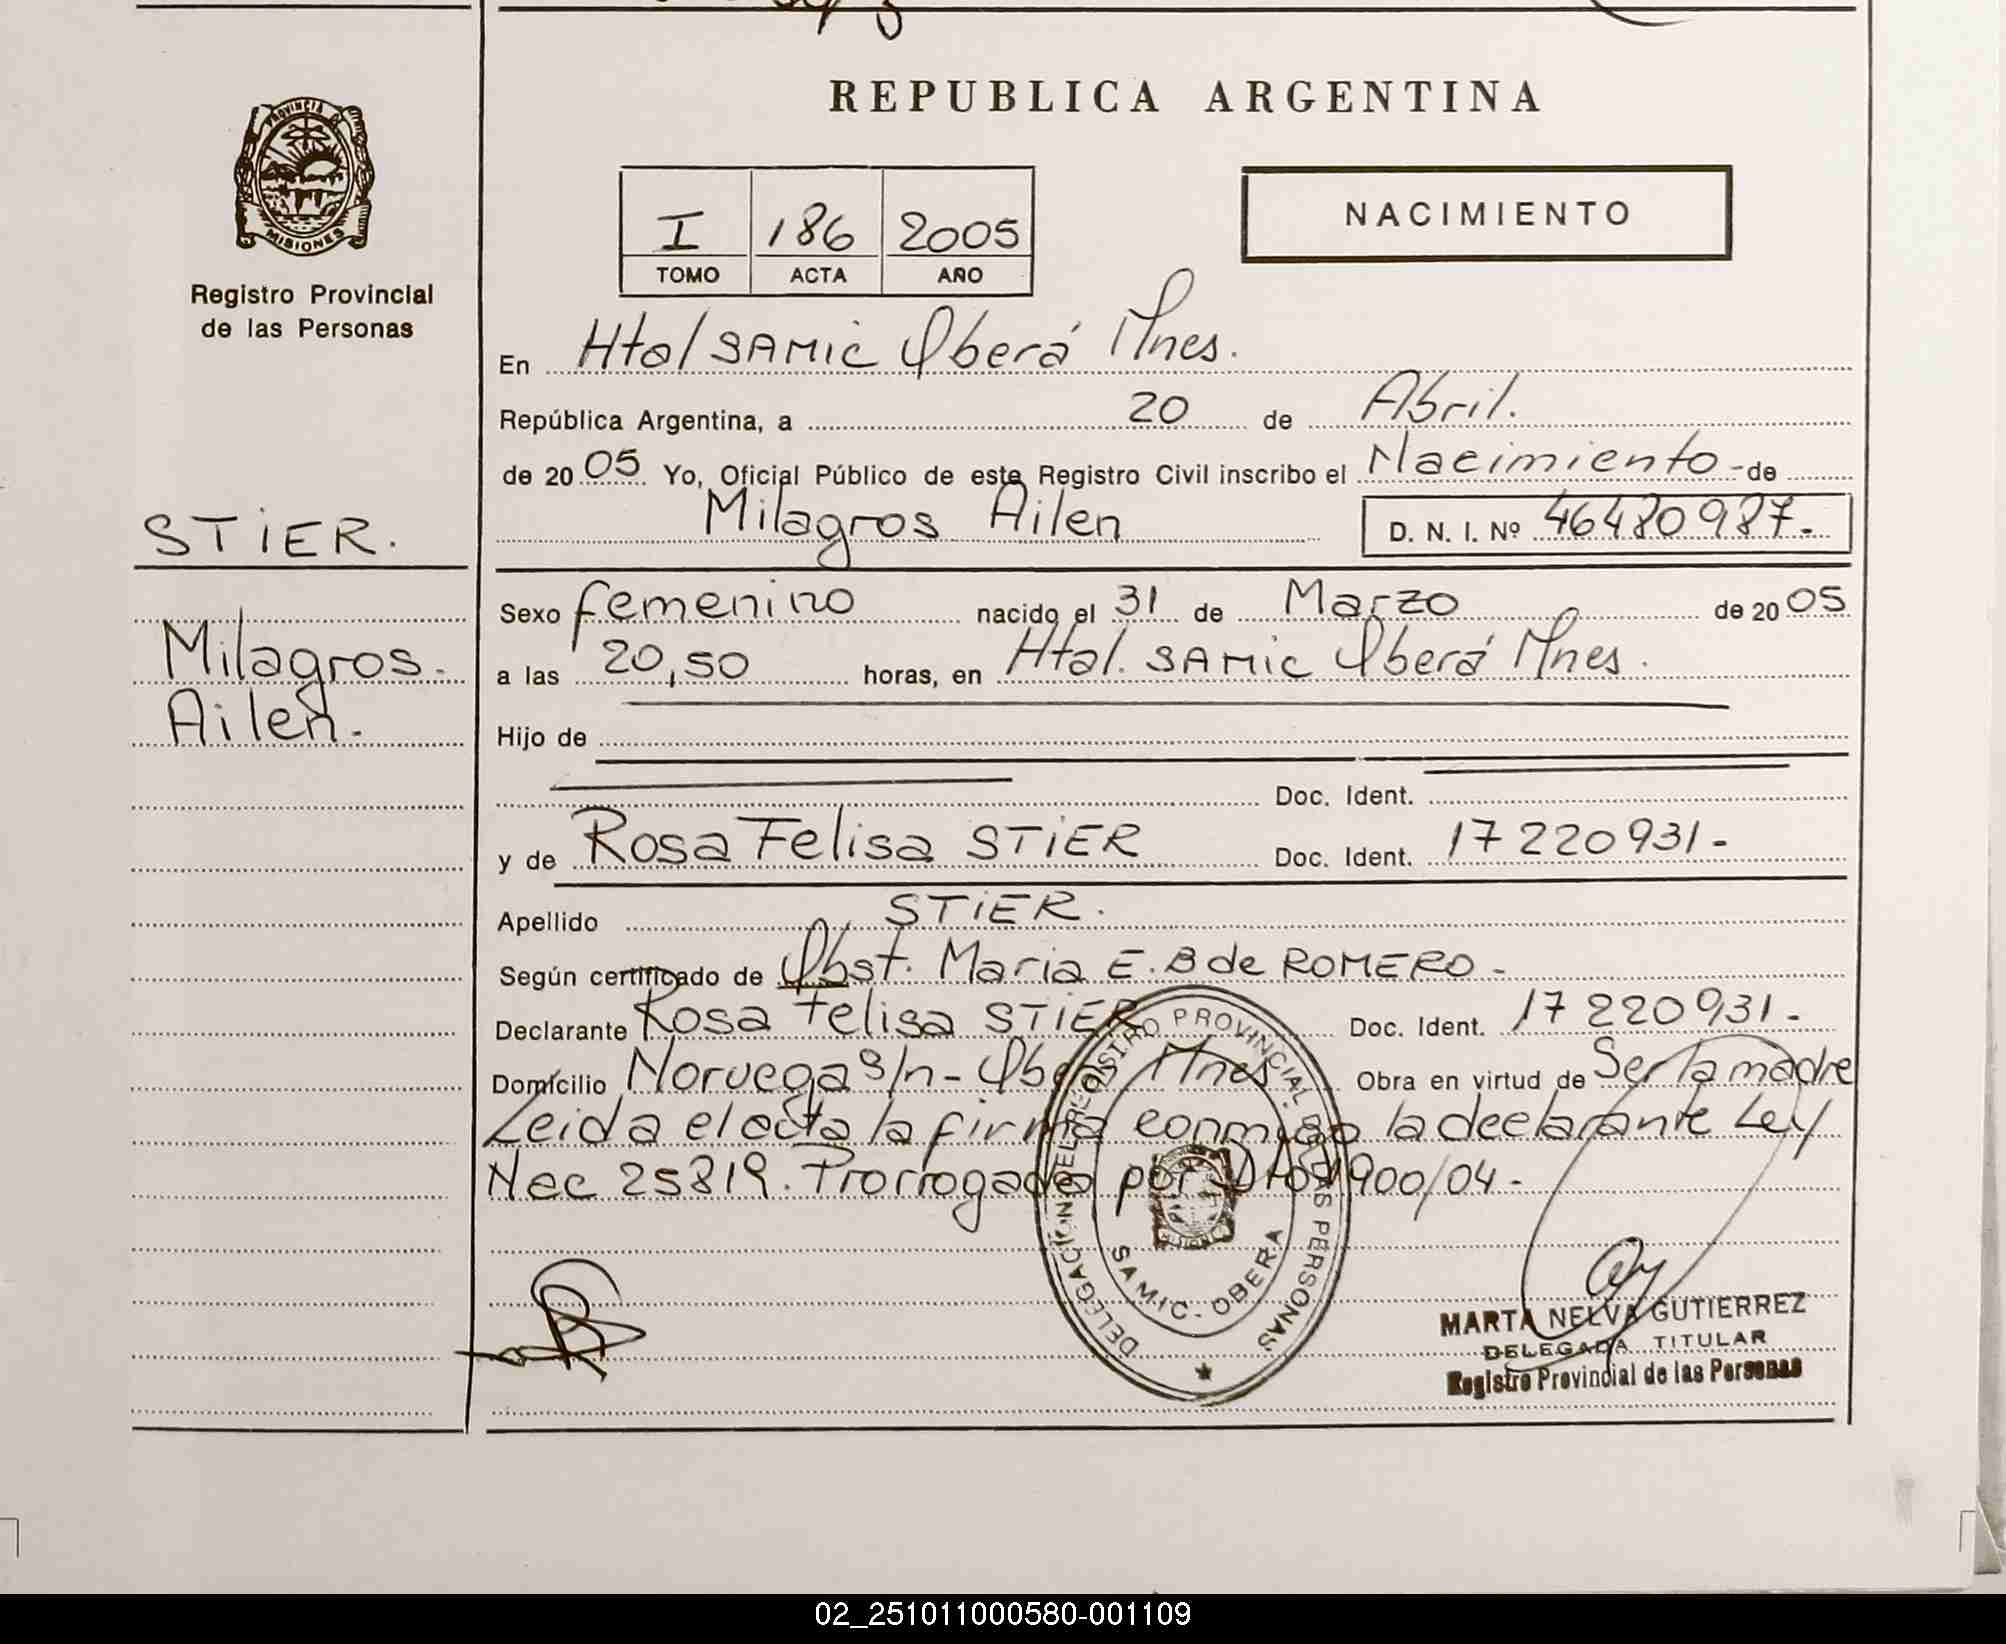 REPUBLICA ARGENTINA
PROVINCIA DE
MISIONES
Registro Provincial
de las Personas
I 186 2005
TOMO ACTA AÑO
NACIMIENTO
En Htal SAMic Oberá Mnes.
República Argentina, a 20 de Abril.
de 2005 Yo, Oficial Público de este Registro Civil inscribo el Nacimiento - de
Milagros Ailen D. N. I. Nº 46480987.-
STiER.
Milagros.
Ailen.-
Sexo femenino nacido el 31 de Marzo de 2005
a las 20,50 horas, en Htal. SAMic Oberá Mnes.
Hijo de
Doc. Ident.
y de Rosa Felisa STiER Doc. Ident. 17 220931-
Apellido STiER.
Según certificado de Obst. Maria E. B de ROMERO-
Declarante Rosa Felisa STiER Doc. Ident. 17 220931-
Domicilio Noruega S/n - Oberá Mnes. Obra en virtud de Ser la madre
Leida el acta la firma conmigo la declarante Ley
Nac 25819. Prorrogada por Dto 1900/04-
DELEGACION DEL REGISTRO PROVINCIAL DE LAS PERSONAS
SAMIC - OBERA
MARTA NELVA GUTIERREZ
DELEGADA TITULAR
Registro Provincial de las Personas
02_251011000580-001109